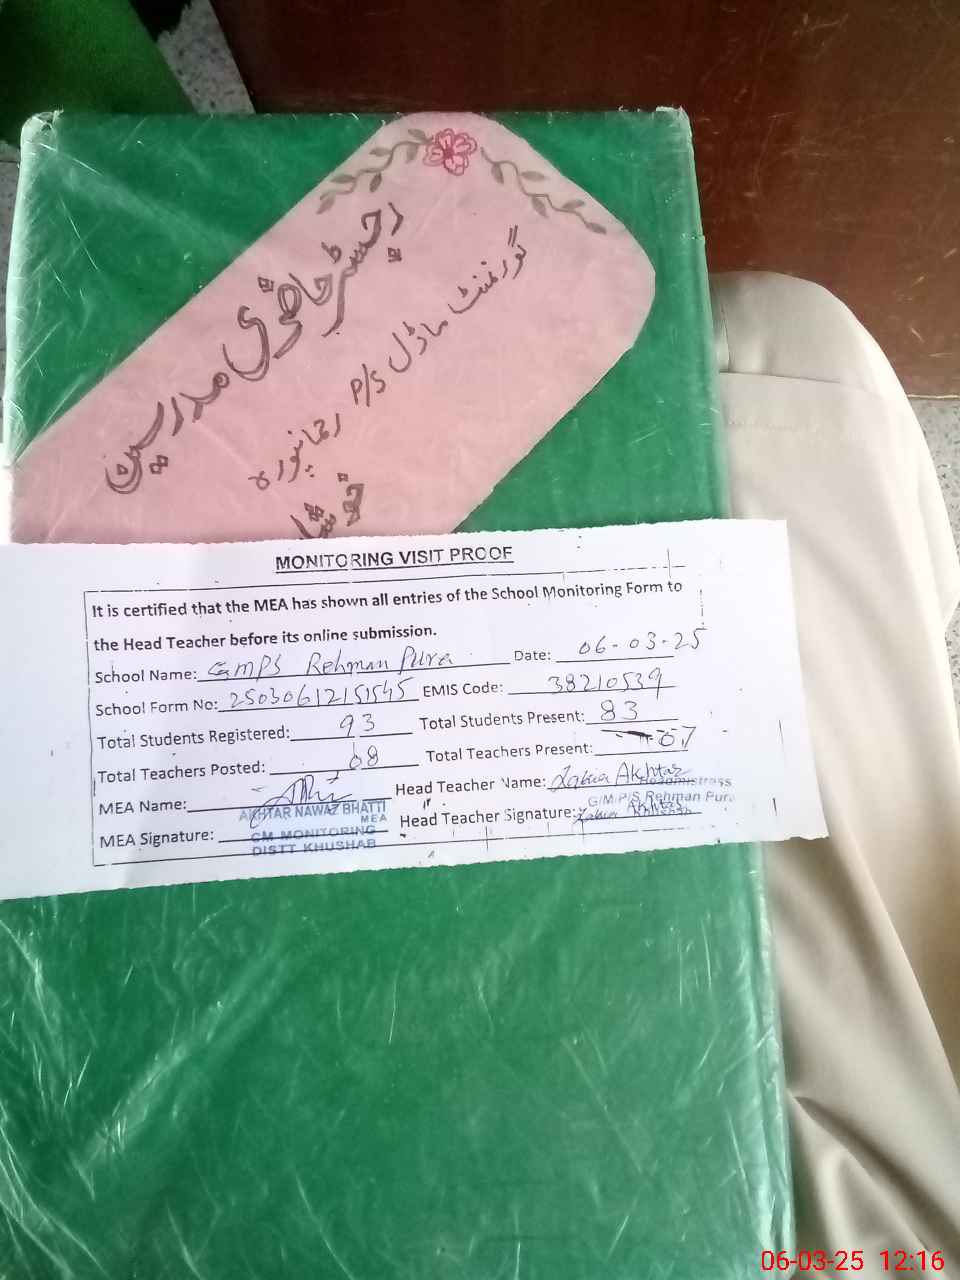 رجسٹر حاضری مدرسین
گورنمنٹ ماڈل P/S رحمانپورہ
MONITORING VISIT PROOF
It is certified that the MEA has shown all entries of the School Monitoring Form to
the Head Teacher before its online submission.
School Name: GMPS Rehman Pura Date: 06-03-25
School Form No: 25030612151545 EMIS Code: 38210539
Total Students Registered: 93 Total Students Present: 83
Total Teachers Posted: 08 Total Teachers Present: 07
MEA Name: Head Teacher Name: Akhtar
AKHTAR NAWAZ BHATTI
MEA
Headmistress
G/M/P/S Rehman Pura
MEA Signature: Head Teacher Signature: Akhtar
CM MONITORING
DISTT KHUSHAB
06-03-25 12:16